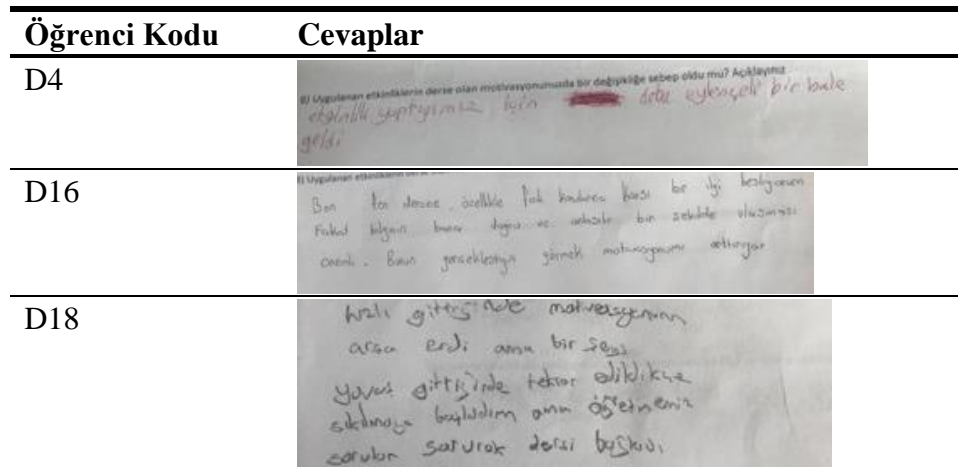 Öğrenci Kodu Cevaplar
D4
8) Uygulanan etkinliklerin derse olan motivasyonunuzda bir değişikliğe sebep oldu mu? Açıklayınız
etkinlik yaptığımız için daha eğlenceli bir hale
geldi
D16
Uygulanan etkinliklerin
Ben fen dersine özellikle fizik karşı bir ilgi besliyorum
Fakat bilginin bana doğru ve bir şekilde ulaşması
önemli. Bunun gerçekleştiğini görmek motivasyonumu arttırıyor
D18
hızlı gittiğinde motivasyonum
erdi ama bir şeyi
yavaş gittiğinde tekrar edildikçe
sıkılmaya başladım ama öğretmenimiz
sorular sorarak dersi